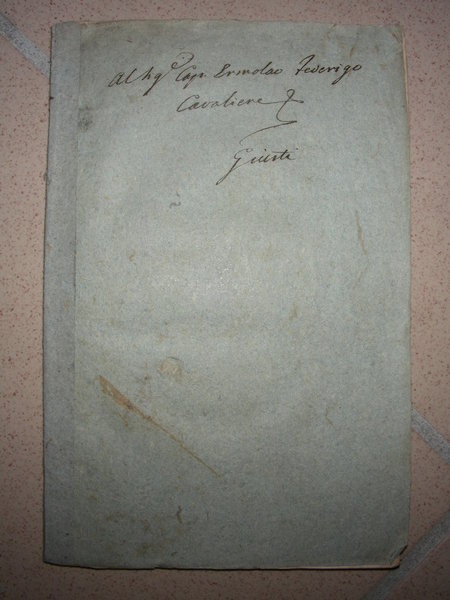 Al Sigr. Cap. Ermolao Federigo
Cavaliere
Giusti